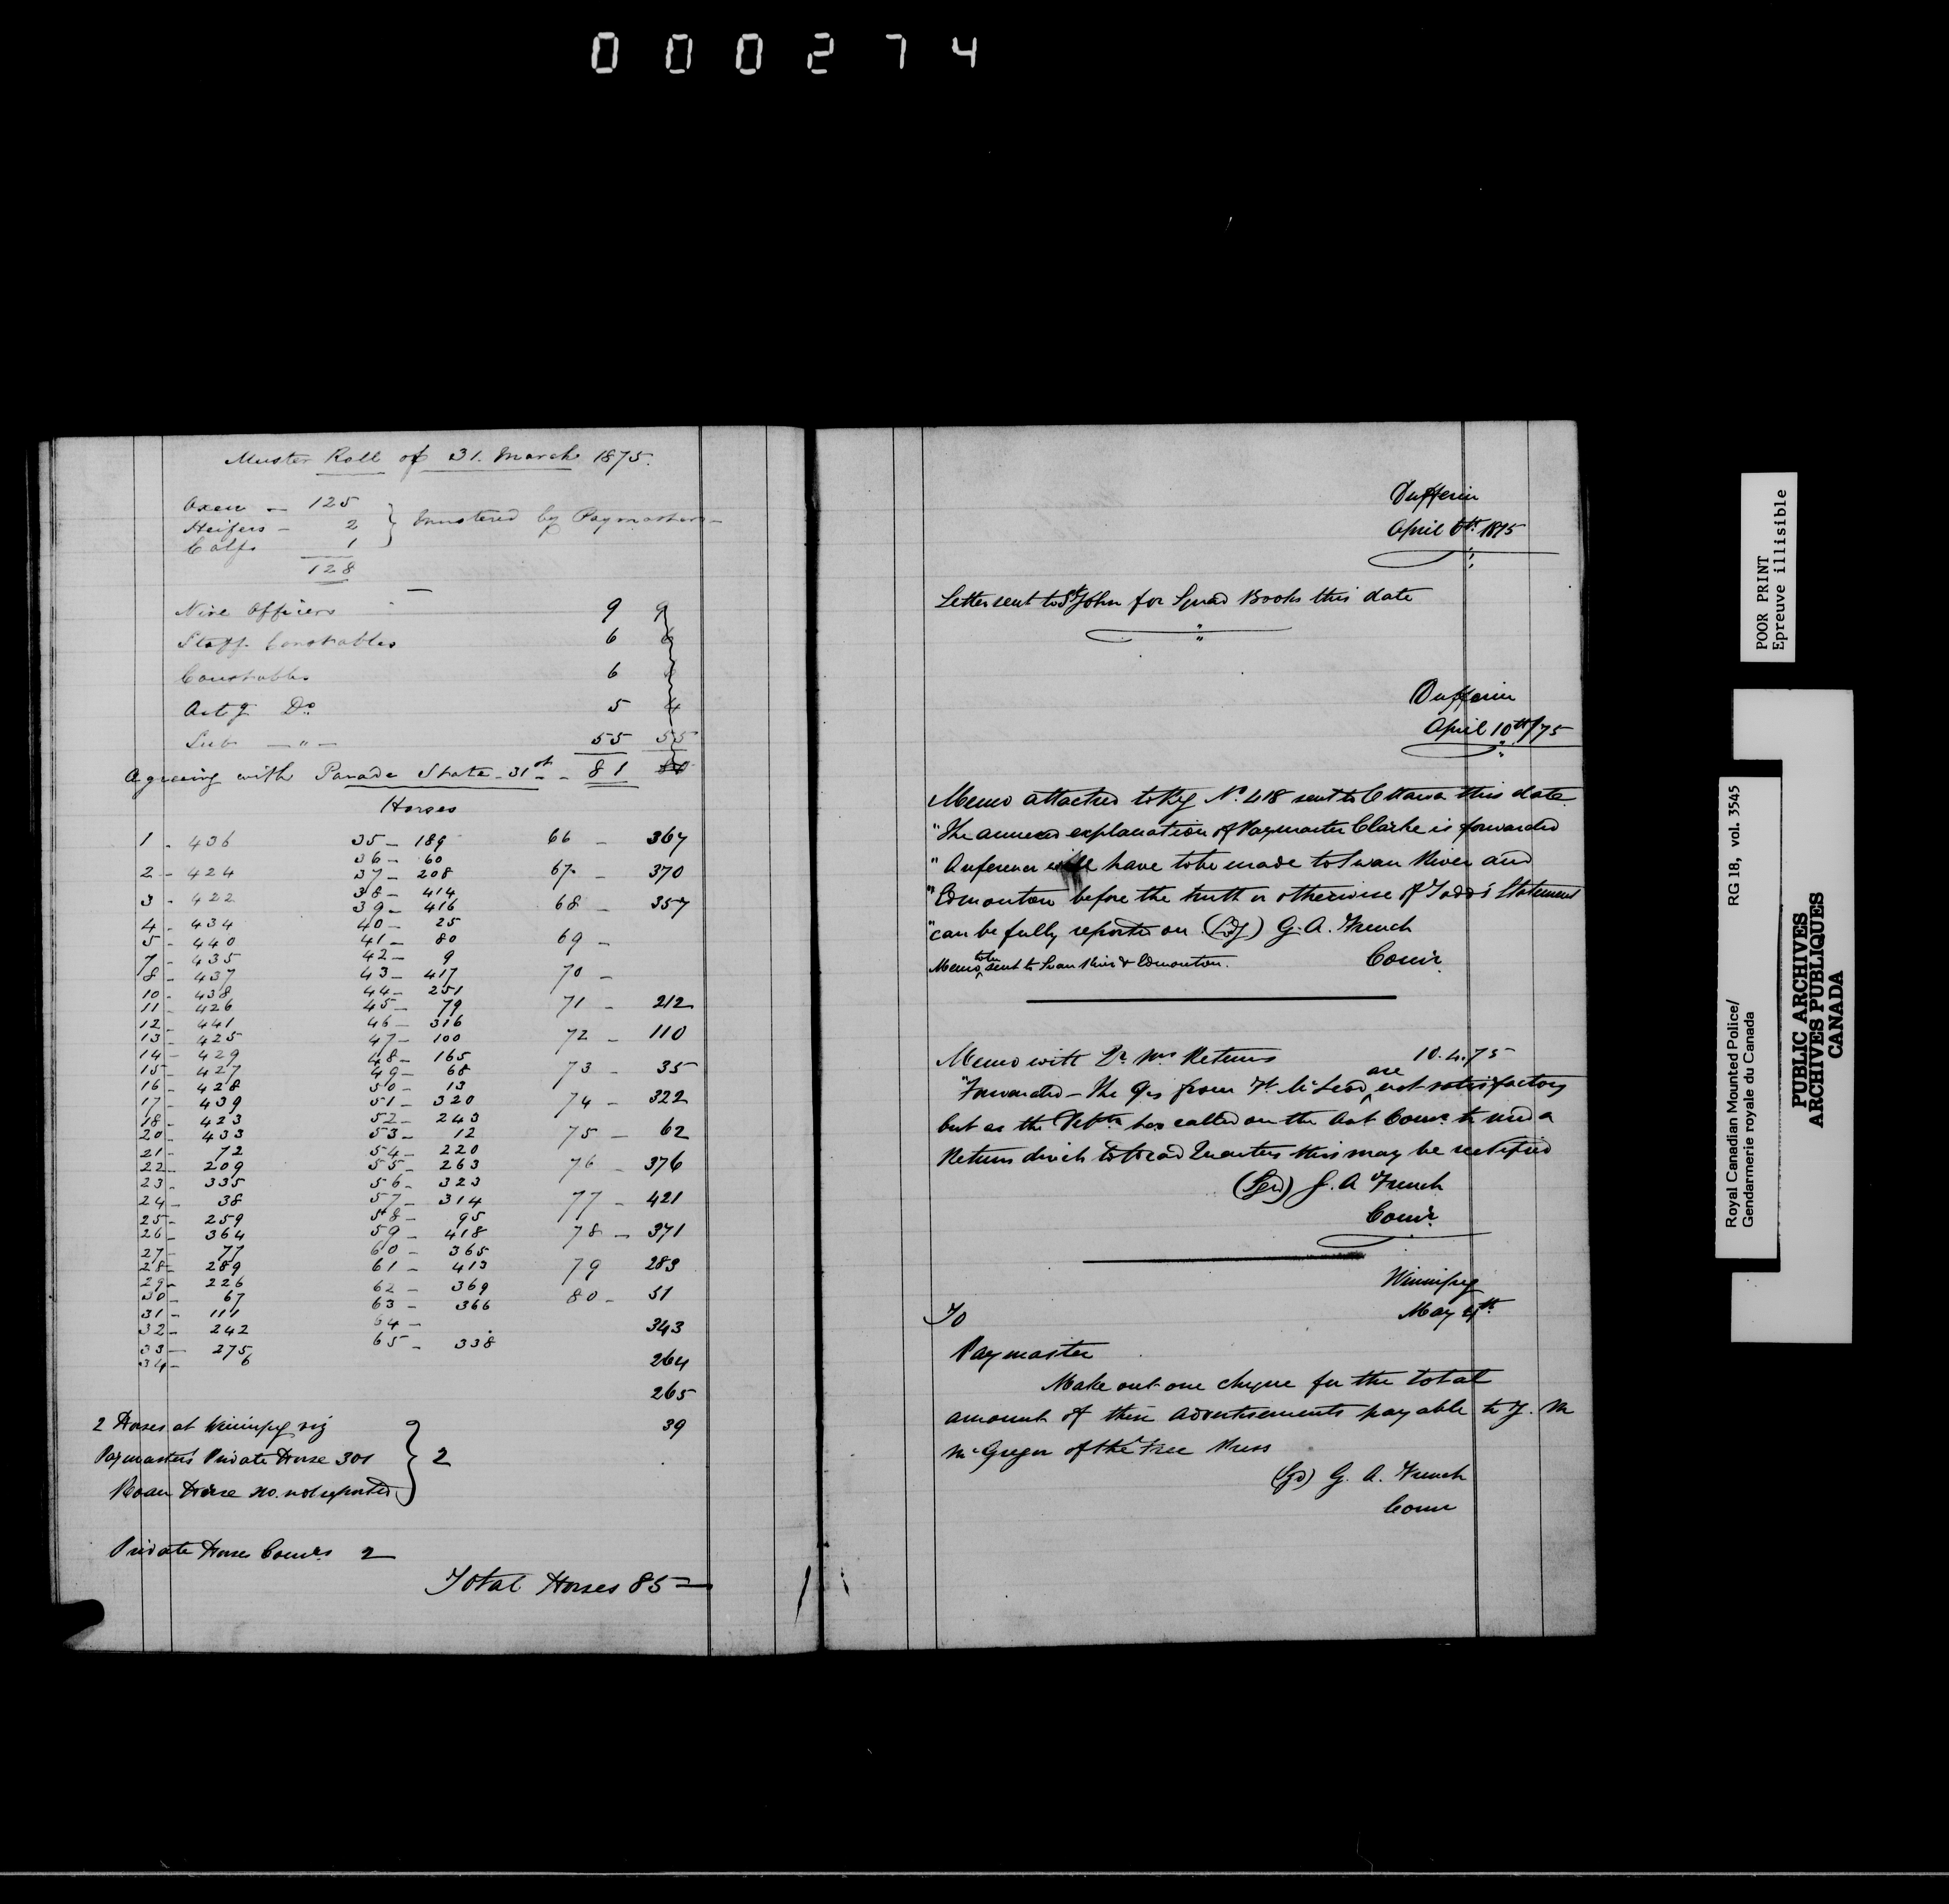 000274
Muster Roll of 31. March 1875.
Oxen - 125
Heifers - 2 } Mustered by Paymaster -
Calfs 1
128
Nine Officers 9 9
Staff Constables 6 6
Constables 6
Actg Do. 5 4
Sub - " - 55 55
Agreeing with Parade State - 31st - 81
Horses
1 - 436
2 - 424
3 - 422
4 - 434
5 - 440
7 - 435
8 - 437
10 - 438
11 - 426
12 - 441
13 - 425
14 - 429
15 - 427
16 - 428
17 - 439
18 - 423
20 - 433
21 - 72
22 - 209
23 - 335
24 - 38
25 - 259
26 - 364
27 - 77
28 - 289
29 - 226
30 - 67
31 - 111
32 - 242
33 - 275
34 - 6
35 - 189
36 - 60
37 - 208
38 - 414
39 - 416
40 - 25
41 - 80
42 - 9
43 - 417
44 - 251
45 - 79
46 - 316
47 - 100
48 - 165
49 - 68
50 - 13
51 - 320
52 - 243
53 - 12
54 - 220
55 - 263
56 - 323
57 - 314
58 - 95
59 - 418
60 - 365
61 - 413
62 - 369
63 - 366
64 -
65 - 338
66 - 367
67 - 370
68 - 357
69 -
70 -
71 - 212
72 - 110
73 - 35
74 - 322
75 - 62
76 - 376
77 - 421
78 - 371
79 283
80 - 51
343
264
265
39
2 Horses at Winnipeg viz
Paymasters Private Horse 301 } 2
Roan Horse no. not reported
Private Horses Comrs 2
Total Horses 85
Dufferin
April 6th 1875
Letter sent to St John for Squad Books this date
Dufferin
April 10th/75
Memo attached to Reg No. 418 sent to Ottawa this date
"The annexed explanation of Paymaster Clarke is forwarded
"A reference will have to be made to Swan River and
"Edmonton before the truth or otherwise of Todd's Statement
"can be fully reported on (Sgd) G. A. French
Comr.
Memo to be sent to Swan River & Edmonton.
Memo with Qr. Mrs Returns 10.4.75
"Forwarded - The Qrs from Ft. McLeod are not satisfactory
but as the has called on the Asst Comr. to send a
Return direct to Head Quarters this may be rectified
(Sgd) G. A French
Comr.
Winnipeg
May 4th
To
Paymaster
Make out one cheque for the total
amount of these advertisements payable to J. M
McGregor of the Free Press
(Sgd) G. A. French
Comr
POOR PRINT
Epreuve illisible
Royal Canadian Mounted Police/ RG 18, vol. 3545
Gendarmerie royale du Canada
PUBLIC ARCHIVES
ARCHIVES PUBLIQUES
CANADA